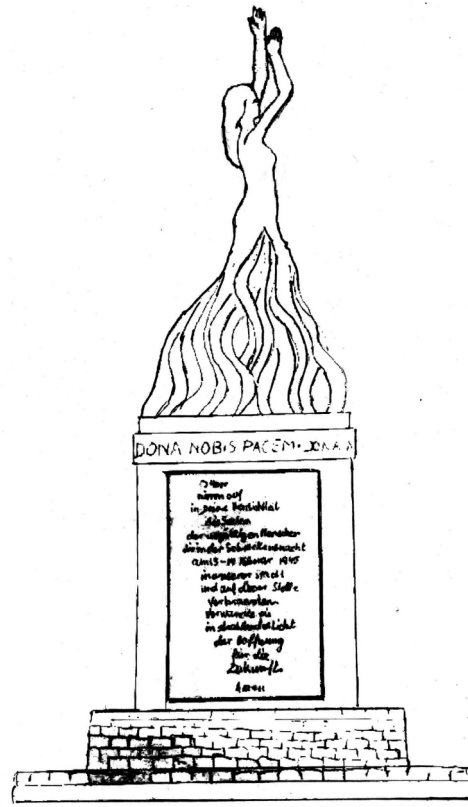 DONA NOBIS PACEM · DONA N
O Herr
nimm auf
in Deine
die Seelen
der unzähligen Menschen
die in der Schreckensnacht
am 13-14 Februar 1945
in unserer Stadt
und auf dieser Stelle
verbrannten
Verwandle sie
in strahlendes Licht
der Hoffnung
für die
Zukunft.
Amen